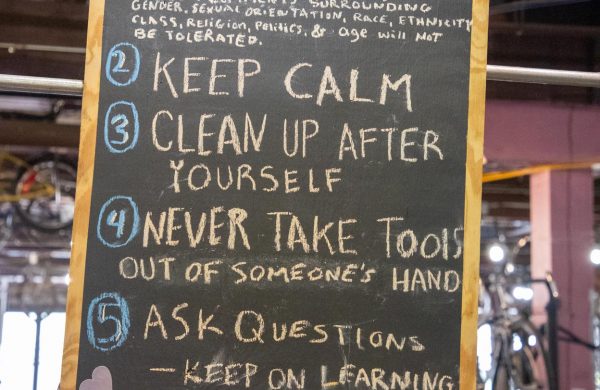 SURROUNDING
GENDER, SEXUAL ORIENTATION, RACE, ETHNICITY
CLASS, RELIGION, POLITICS, & AGE WILL NOT
BE TOLERATED.
② KEEP CALM
③ CLEAN UP AFTER
YOURSELF
④ NEVER TAKE TOOLS
OUT OF SOMEONE'S HAND
⑤ ASK QUESTIONS
— KEEP ON LEARNING